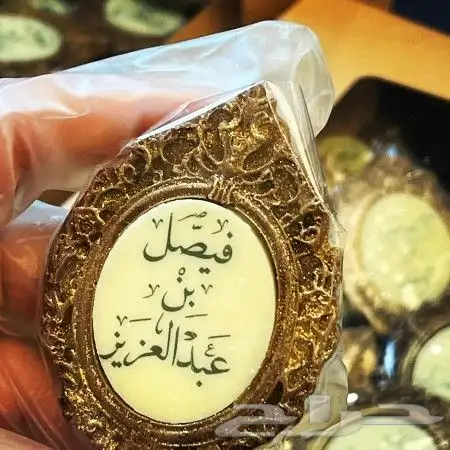 فَيْصَلْ
بِنْ
عَبْدَالْعَزِيز
حراج